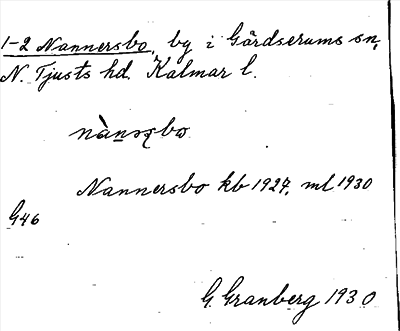 1-2 Nannersbo, by i Gårdserums sn,
N. Tjusts hd. Kalmar l.
nànəʂbω
Nannersbo kb 1927, ml 1930
G46
G. Granberg 1930